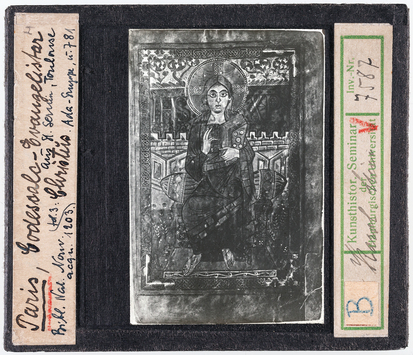 Paris,
Bibl. Nat. Nouv.
acqu. (1203)
Godescalc-Evangelistar
aus St. Sernin, Toulouse
Hs: Christus
Ada-Gruppe, u. 781
Kunsthistor. Seminar
der
Inv.-Nr.
7587
B
V